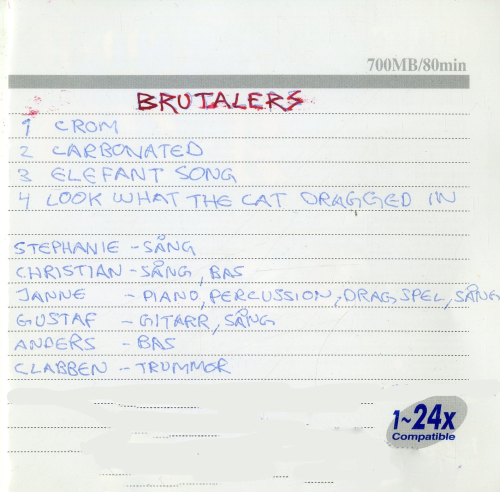 700MB/80min
BRUTALERS
1 CROM
2 CARBONATED
3 ELEFANT SONG
4 LOOK WHAT THE CAT DRAGGED IN
STEPHANIE - SÅNG
CHRISTIAN - SÅNG, BAS
JANNE - PIANO, PERCUSSION, DRAGSPEL, SÅNG
GUSTAF - GITARR, SÅNG
ANDERS - BAS
CLABBEN - TRUMMOR
1~24x
Compatible